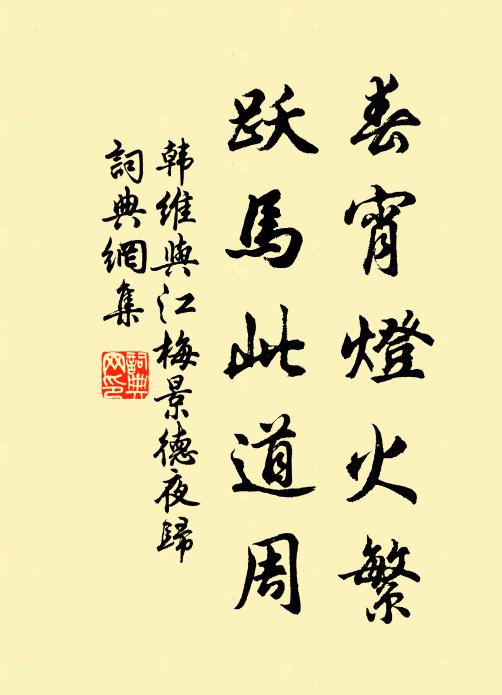 春宵燈火繁
跃馬此道周
韩維與江梅景德夜歸
詞典網集
詞典
网印